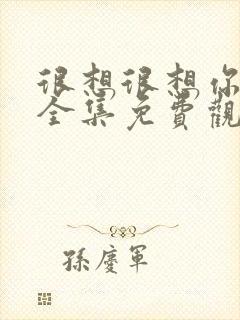 很想很想你
全集免費觀
孫慶軍